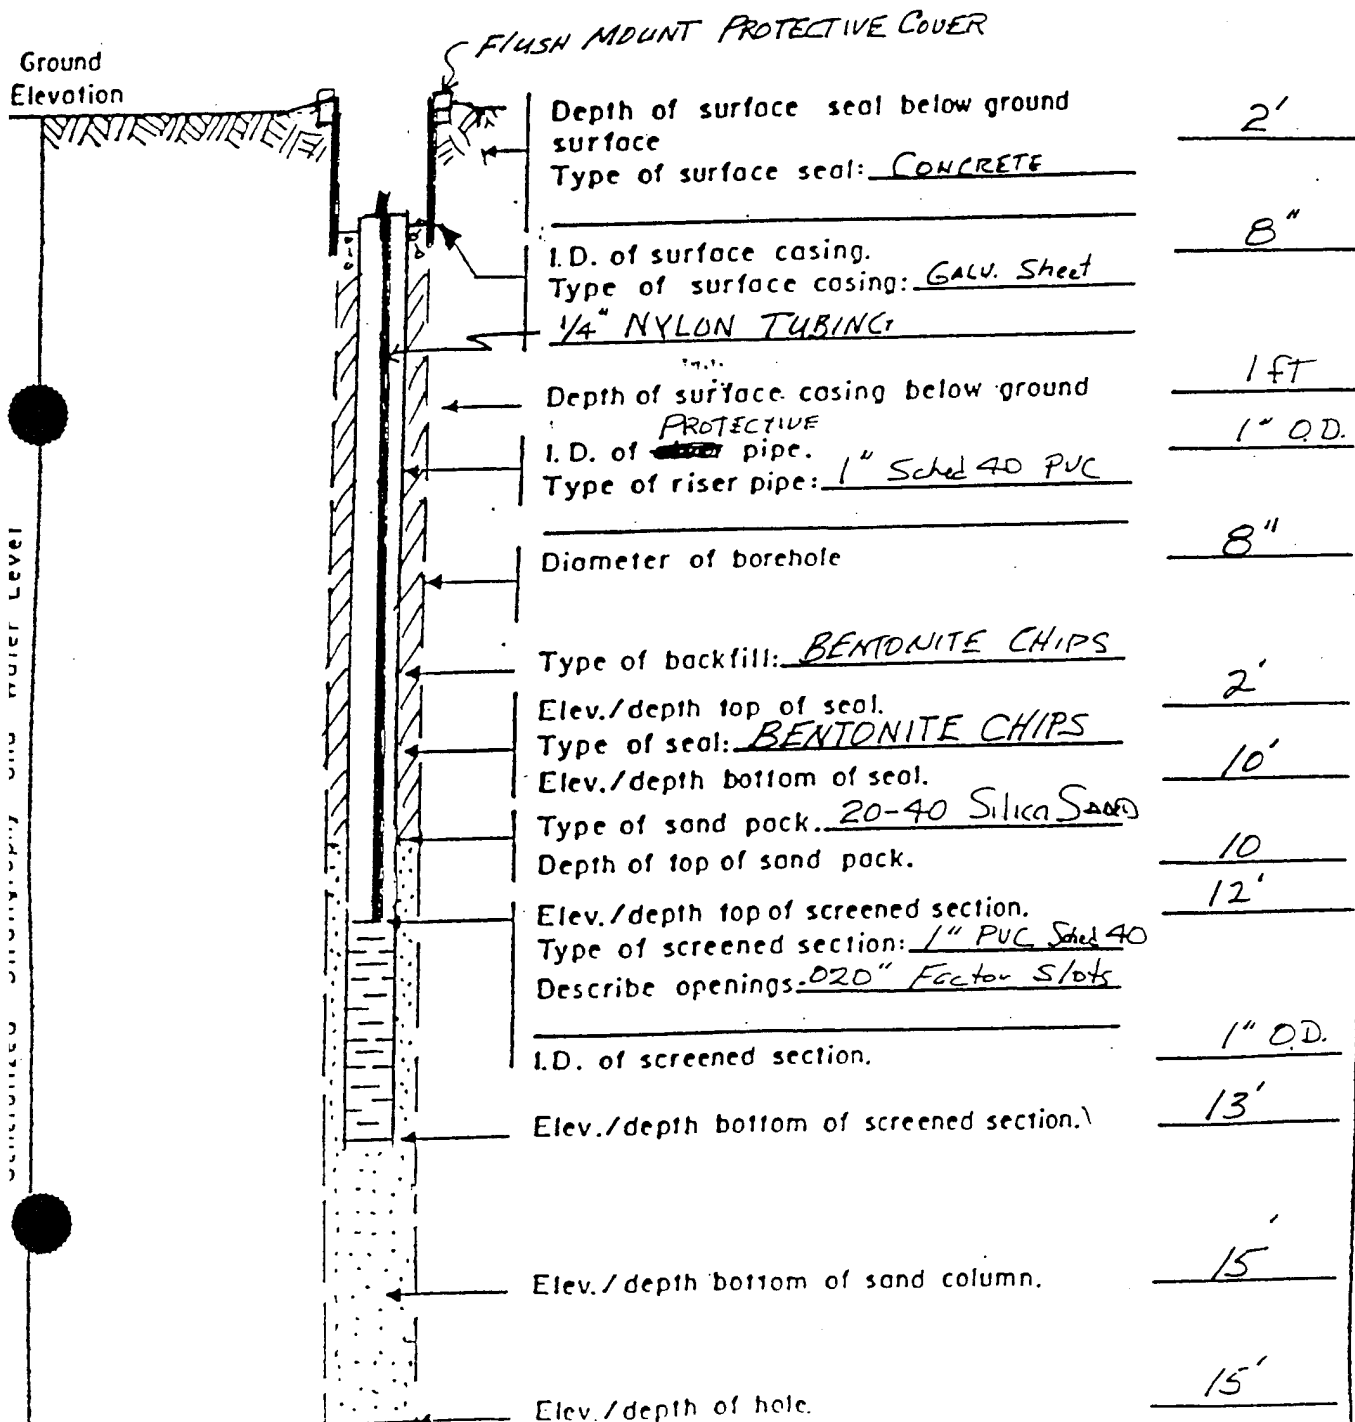 FLUSH MOUNT PROTECTIVE COVER
Ground
Elevation
Depth of surface seal below ground
surface
2'
Type of surface seal: CONCRETE
I.D. of surface casing.
8"
Type of surface casing: GALV. Sheet
1/4" NYLON TUBING
Depth of surface casing below ground
1 fT
PROTECTIVE
I.D. of pipe.
1" O.D.
Type of riser pipe: 1" Sched 40 PVC
Diameter of borehole
8"
Type of backfill: BENTONITE CHIPS
Elev./depth top of seal.
2'
Type of seal: BENTONITE CHIPS
Elev./depth bottom of seal.
10'
Type of sand pack. 20-40 Silica SAND
Depth of top of sand pack.
10
Elev./depth top of screened section.
12'
Type of screened section: 1" PVC Sched 40
Describe openings .020" Factor Slots
I.D. of screened section.
1" O.D.
Elev./depth bottom of screened section.
13'
Elev./depth bottom of sand column.
15'
Elev./depth of hole.
15'
and Water Level